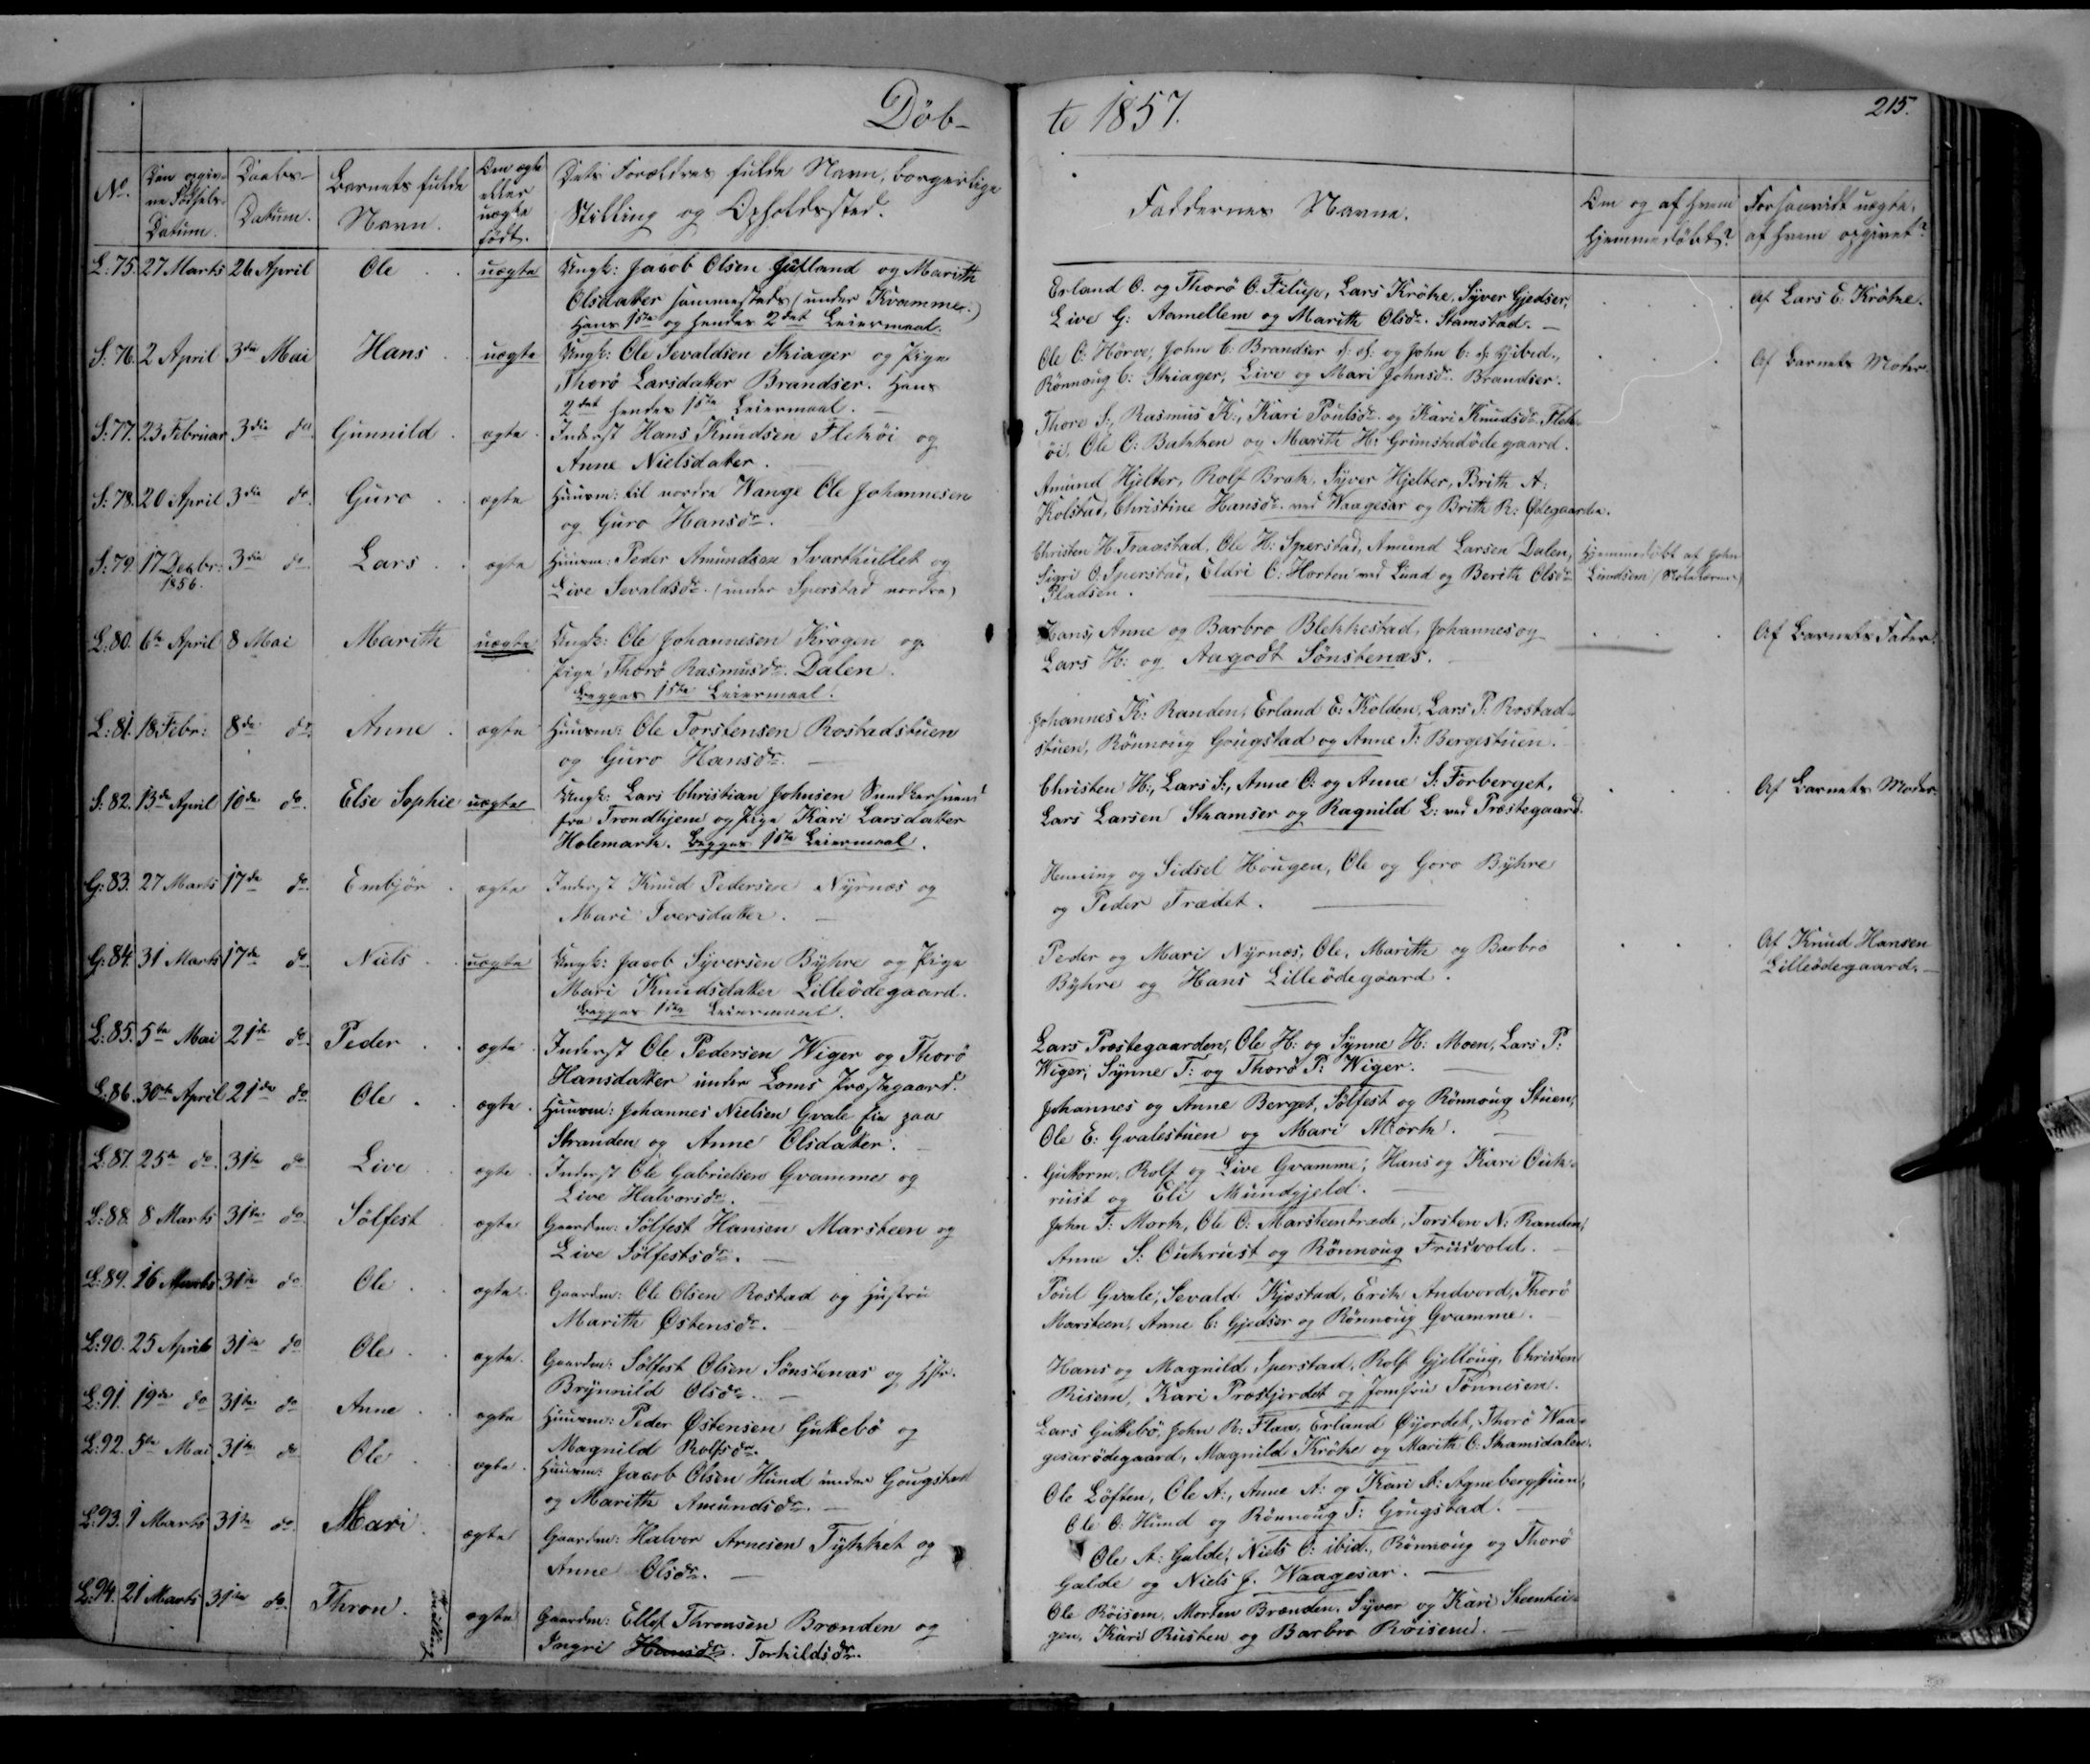 Døb-
te 1857.
215.
No.
Den opgiv-
ne Fødsels-
Datum.
Daabs-
Datum.
Barnets fulde
Navn.
Om ægte
eller
uægte
født.
Dets Forældres fulde Navn, borgerlige
Stilling og Opholdssted.
Faddernes Navne.
Om og af hvem
hjemmedøbt?
Forsaavidt uægte,
af hvem opgivet?
L: 75. 27 Marts 26 April Ole uægte Ungk: Jacob Olsen Jutland og Marith
Olsdatter sammesteds (under Kvamme.)
Hans 1ste og hendes 2det Leiermaal.
Erland O. og Thorø O. Filup, Lars Krøke, Syver Gjedser,
Live G: Aamellem og Marith Olsdr. Stamstad.
Af Lars E. Krøke.
S: 76. 2 April 3die Mai Hans uægte Ungk: Ole Sevaldsen Skiager og Pige
Thorø Larsdatter Brandser. Hans
2det hendes 1ste Leiermaal.
Ole O: Hørve, John og John ibid.,
Rønnoug Skiager, Live og Mari Johnsdr. Brandser.
Af Barnets Moder.
S: 77. 23 Februar 3die do Gunnild ægte Inderst Hans Knudsen Flekøi og
Anne Nielsdatter.
Thore S:, Rasmus K:, Kari Poulsdr. og Kari Knudsdr. Flek-
øi, Ole O: Bakken og Marith H: Grimstadødegaard.
S: 78. 20 April 3die do. Guro ægte Huusm: til nordre Wange Ole Johannesen
og Guro Hansdr.
Amund Hjelter, Rolf Brak, Syver Hjelter, Brith A:
Kolstad, Christine Hansdr. ved Waagesar og Brith R: Ødegaarden.
S: 79. 17 Decbr: 3die do Lars ægte Huusm: Peder Amundsen Svarthullet og
1856.
Live Sevaldsdr. (under Sperstad nordre)
Christen H. Traastad, Ole H: Sperstad, Amund Larsen Dalen,
Sigri O. Sperstad, Eldri O: Horten ved Lund og Berith Olsdr.
Pladsen.
Hjemmedøbt af John
L: 80. 6te April 8 Mai Marith uægte Ungk: Ole Johannesen Krogen og
Pige Thorø Rasmusdr. Dalen.
Begges 1ste Leiermaal.
Hans, Anne og Barbro Blekkestad, Johannes og
Lars H: og Aagodt Sønstenæs.
Af Barnets Fader.
L: 81. 18 Febr: 8de do. Anne ægte Huusm: Ole Torstensen Rostadstuen
og Guro Hansdr.
Johannes K: Randen, Erland E: Kolden, Lars P: Rostad-
stuen, Rønnoug Gougstad og Anne T: Bergestuen.
S: 82. 13de April 10de do. Else Sophie uægte Ungk: Lars Christian Johnsen
fra Trondhjem og Pige Kari Larsdatter
Holemark. Begges 1ste Leiermaal.
Christen H:, Lars S:, Anne O: og Anne S: Forberget,
Lars Larsen Stamser og Ragnild L: ved Præstegaard.
Af Barnets Moder.
G: 83. 27 Marts 17de do. Embjør ægte Inderst Knud Pedersen Nyrnæs og
Mari Iversdatter.
Henning og Sidsel Hougen, Ole og Goro Byhre
og Peder Trædet.
G: 84. 31 Marts 17de do. Niels uægte Ungk: Jacob Syversen Byhre og Pige
Mari Knudsdatter Lilleødegaard.
Begges 1ste Leiermaal.
Peder og Mari Nyrnæs, Ole, Marith og Barbro
Byhre og Hans Lilleødegaard.
Af Knud Hansen
Lilleødegaard.
L: 85. 5te Mai 21de do. Peder ægte Inderst Ole Pedersen Wiger og Thorø
Hansdatter under Loms Præstegaard.
Lars Præstegaarden, Ole H: og Synne H: Moen, Lars P:
Wiger, Synne T: og Thorø P: Wiger.
L: 86. 30te April 21de do. Ole ægte Huusm: Johannes Nielsen Gvale Eie paa
Stranden og Anne Olsdatter.
Johannes og Anne Berget, Sølfest og Rønnoug Stuen,
Ole E: Gvalestuen og Mari Mørk.
L: 87. 25te do. 31te do Live ægte Inderst Ole Gabrielsen Gvamme og
Live Halvorsdr.
Guttorm, Rolf og Live Gvamme, Hans og Kari Ouk-
rust og Eli Mundgjeld.
L: 88. 8 Marts 31te do Sølfest ægte Gaardm: Sølfest Hansen Marsteen og
Live Sølfestsdr.
John T: Mork, Ole O: Marsteentræde, Torsten N: Randen,
Anne S: Oukrust og Rønnoug Friisvold.
L: 89. 16 Marts 31te do Ole ægte Gaardm: Ole Olsen Rostad og Hustru
Marith Østensdr.
Poul Gvale, Sevald Kjæstad, Erik Andvord, Thorø
Marsteen, Anne C: Gjedser og Rønnoug Gvamme.
L: 90. 25 April 31te do Ole ægte Gaardm: Sølfest Olsen Sønstenæs og Hstr.
Brynnild Olsdr.
Hans og Magnild Sperstad, Rolf Gjelloug, Christen
Risem, Kari Prostjordet og Jomfru Tønnesen.
L: 91. 19de do 31te do Anne ægte Huusm: Peder Østensen Guttebø og
Magnild Rolfsdr.
Lars Guttebø, John R: Flaa, Erland Øyordet, Thorø Waa-
gesarødegaard, Magnild Krøke og Marith O: Stamsdalen.
L: 92. 5te Mai 31te do Ole ægte Huusm: Jacob Olsen Hund under Gougstad
og Marith Amundsdr.
Ole Løften, Ole A:, Anne A: og Kari A: Agnebergstuen,
Ole O: Hund og Rønnoug T: Gougstad.
L: 93. 1 Marts 31te do Mari ægte Gaardm: Halvor Arnesen Tykket og
Anne Olsdr.
Ole A: Galde, Niels O: ibid., Rønnoug og Thorø
Galde og Niels J. Waagesar.
L: 94. 21 Marts 31te do. Thron. ægte Gaardm: Ellef Thronsen Brænden og
Ingri Hansdr. Torkildsdr.
Ole Røisem, Morten Brænden, Syver og Kari Steenhei-
gen, Kari Rusten og Barbro Røisem.